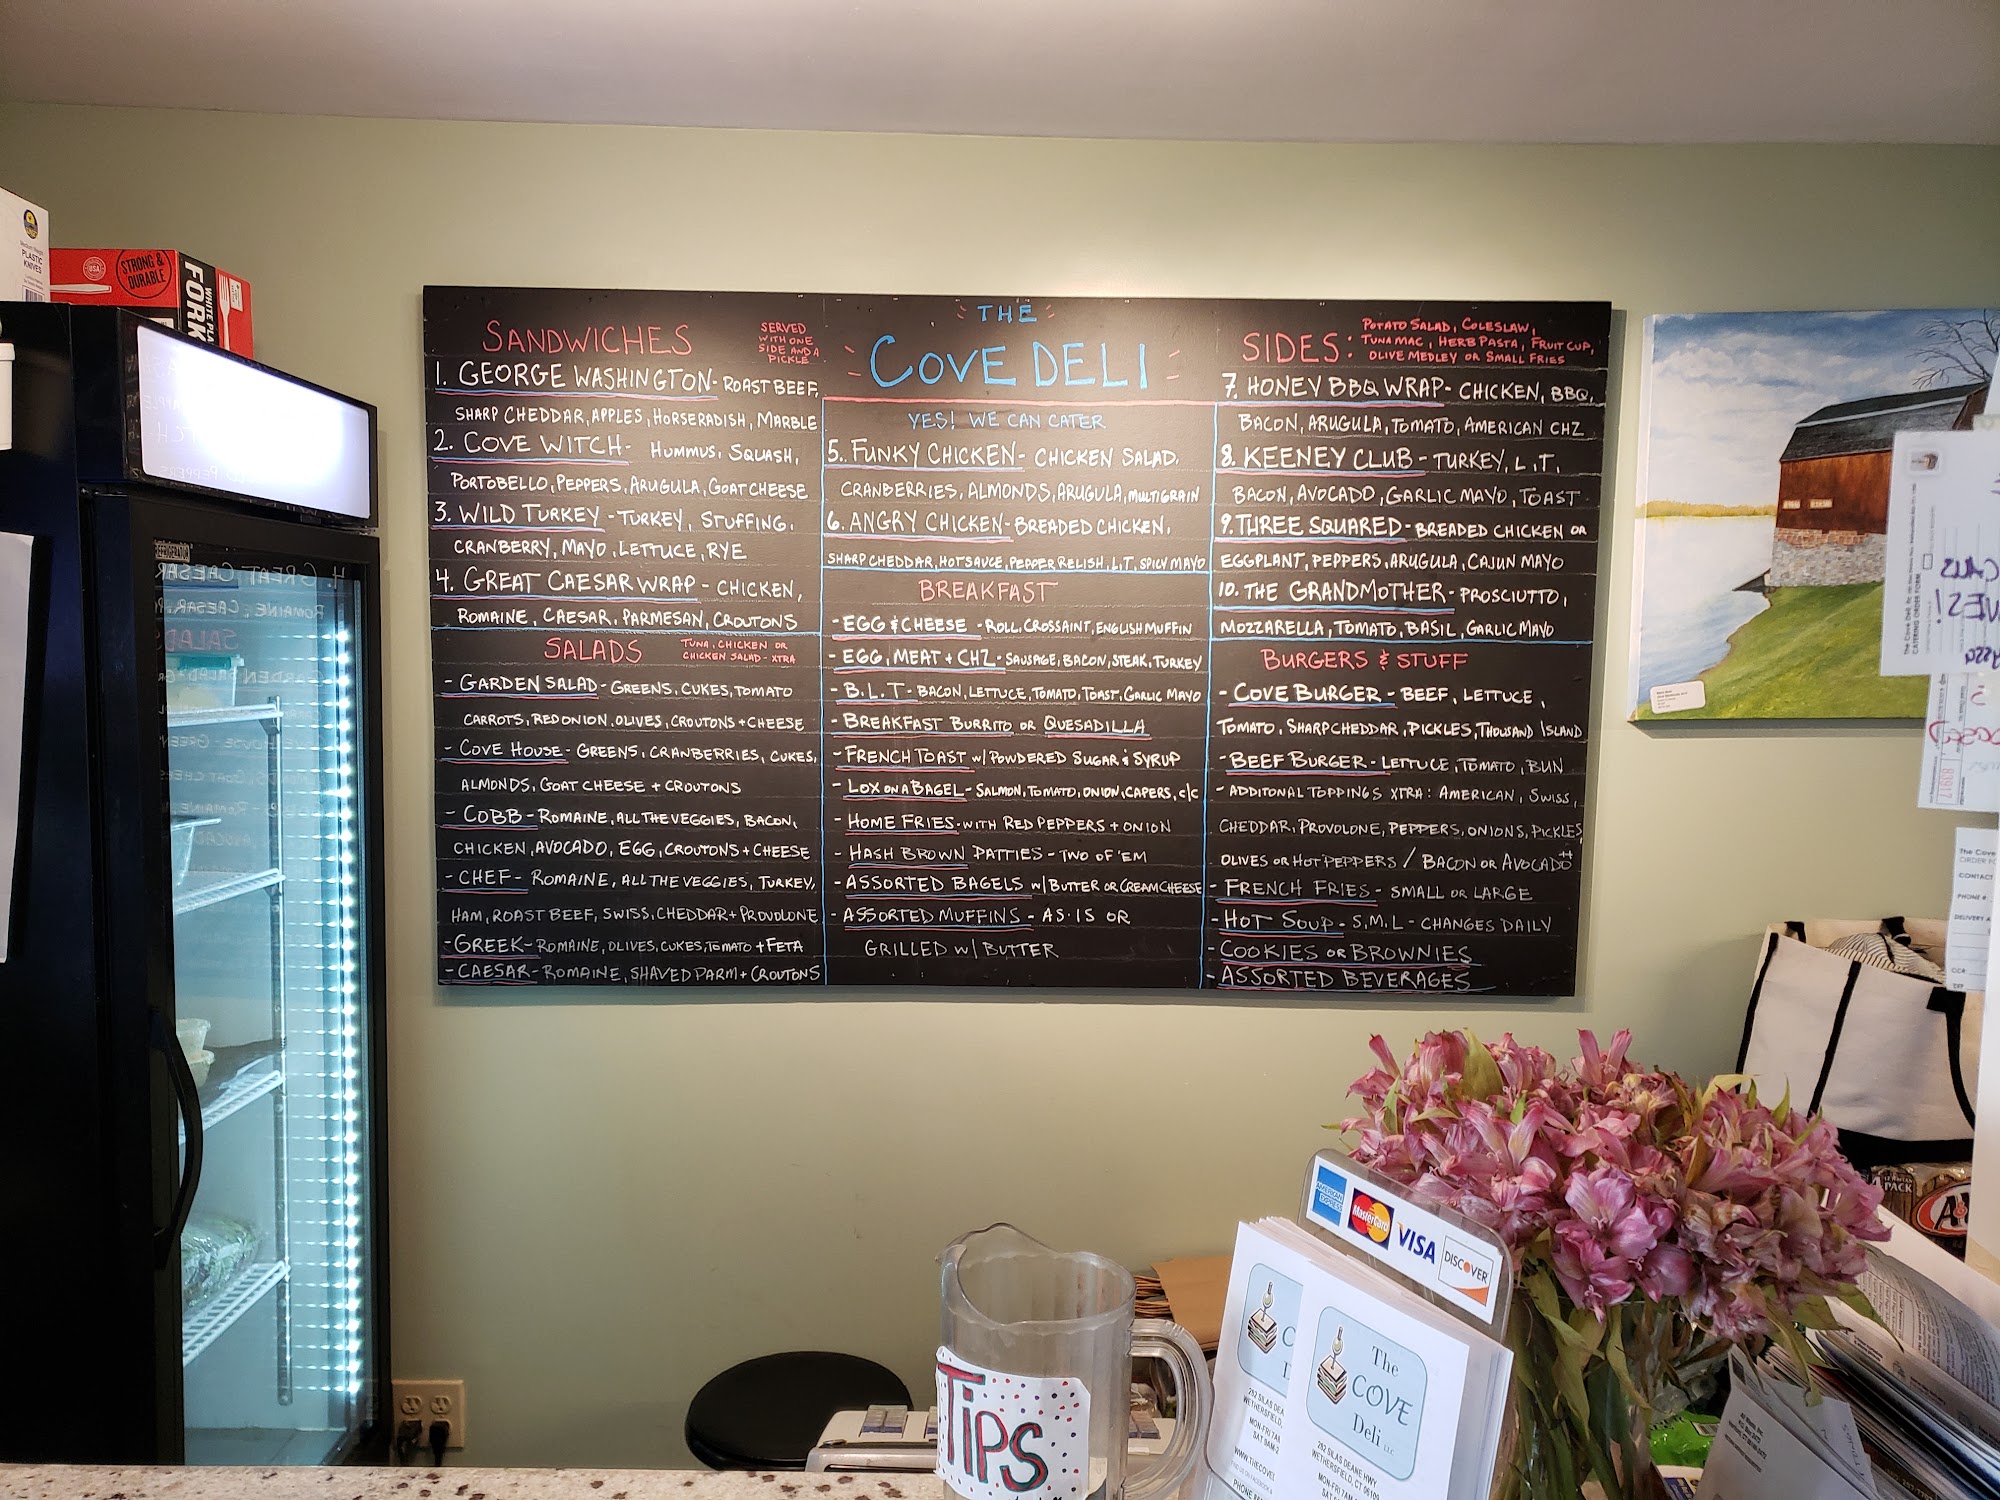 THE
COVE DELI
YES! WE CAN CATER
SANDWICHES
SERVED
WITH ONE
SIDE AND A
PICKLE
1. GEORGE WASHINGTON - ROAST BEEF,
SHARP CHEDDAR, APPLES, HORSERADISH, MARBLE
2. COVE WITCH - HUMMUS, SQUASH,
PORTOBELLO, PEPPERS, ARUGULA, GOAT CHEESE
3. WILD TURKEY - TURKEY, STUFFING,
CRANBERRY, MAYO, LETTUCE, RYE
4. GREAT CAESAR WRAP - CHICKEN,
ROMAINE, CAESAR, PARMESAN, CROUTONS
SALADS
TUNA, CHICKEN OR
CHICKEN SALAD - XTRA
- GARDEN SALAD - GREENS, CUKES, TOMATO
CARROTS, RED ONION, OLIVES, CROUTONS + CHEESE
- COVE HOUSE - GREENS, CRANBERRIES, CUKES,
ALMONDS, GOAT CHEESE + CROUTONS
- COBB - ROMAINE, ALL THE VEGGIES, BACON,
CHICKEN, AVOCADO, EGG, CROUTONS + CHEESE
- CHEF - ROMAINE, ALL THE VEGGIES, TURKEY,
HAM, ROAST BEEF, SWISS, CHEDDAR + PROVOLONE
- GREEK - ROMAINE, OLIVES, CUKES, TOMATO + FETA
- CAESAR - ROMAINE, SHAVED PARM + CROUTONS
5. FUNKY CHICKEN - CHICKEN SALAD,
CRANBERRIES, ALMONDS, ARUGULA, MULTIGRAIN
6. ANGRY CHICKEN - BREADED CHICKEN,
SHARP CHEDDAR, HOT SAUCE, PEPPER RELISH, L,T, SPICY MAYO
BREAKFAST
- EGG & CHEESE - ROLL, CROSSAINT, ENGLISH MUFFIN
- EGG, MEAT + CHZ - SAUSAGE, BACON, STEAK, TURKEY
- B.L.T - BACON, LETTUCE, TOMATO, TOAST, GARLIC MAYO
- BREAKFAST BURRITO OR QUESADILLA
- FRENCH TOAST W/ POWDERED SUGAR & SYRUP
- LOX ON A BAGEL - SALMON, TOMATO, ONION, CAPERS, C/C
- HOME FRIES - WITH RED PEPPERS + ONION
- HASH BROWN PATTIES - TWO OF 'EM
- ASSORTED BAGELS W/ BUTTER OR CREAM CHEESE
- ASSORTED MUFFINS - AS·IS OR
GRILLED W/ BUTTER
SIDES:
POTATO SALAD, COLESLAW,
TUNA MAC, HERB PASTA, FRUIT CUP,
OLIVE MEDLEY OR SMALL FRIES
7. HONEY BBQ WRAP - CHICKEN, BBQ,
BACON, ARUGULA, TOMATO, AMERICAN CHZ
8. KEENEY CLUB - TURKEY, L,T,
BACON, AVOCADO, GARLIC MAYO, TOAST
9. THREE SQUARED - BREADED CHICKEN OR
EGGPLANT, PEPPERS, ARUGULA, CAJUN MAYO
10. THE GRANDMOTHER - PROSCIUTTO,
MOZZARELLA, TOMATO, BASIL, GARLIC MAYO
BURGERS & STUFF
- COVE BURGER - BEEF, LETTUCE,
TOMATO, SHARP CHEDDAR, PICKLES, THOUSAND ISLAND
- BEEF BURGER - LETTUCE, TOMATO, BUN
- ADDITONAL TOPPINGS XTRA: AMERICAN, SWISS,
CHEDDAR, PROVOLONE, PEPPERS, ONIONS, PICKLES,
OLIVES OR HOT PEPPERS / BACON OR AVOCADO
- FRENCH FRIES - SMALL OR LARGE
- HOT SOUP - S,M,L - CHANGES DAILY
- COOKIES OR BROWNIES
- ASSORTED BEVERAGES
PLASTIC
KNIVES
STRONG &
DURABLE
USA
WHITE
FORK
REFRIGERATOR
TIPS
AMERICAN EXPRESS
MasterCard
VISA
DISCOVER
The
COVE
Deli LLC
282 SILAS DEANE HWY
WETHERSFIELD, CT
MON-FRI 7AM
The Cove
CONTACT
PHONE #
PACK